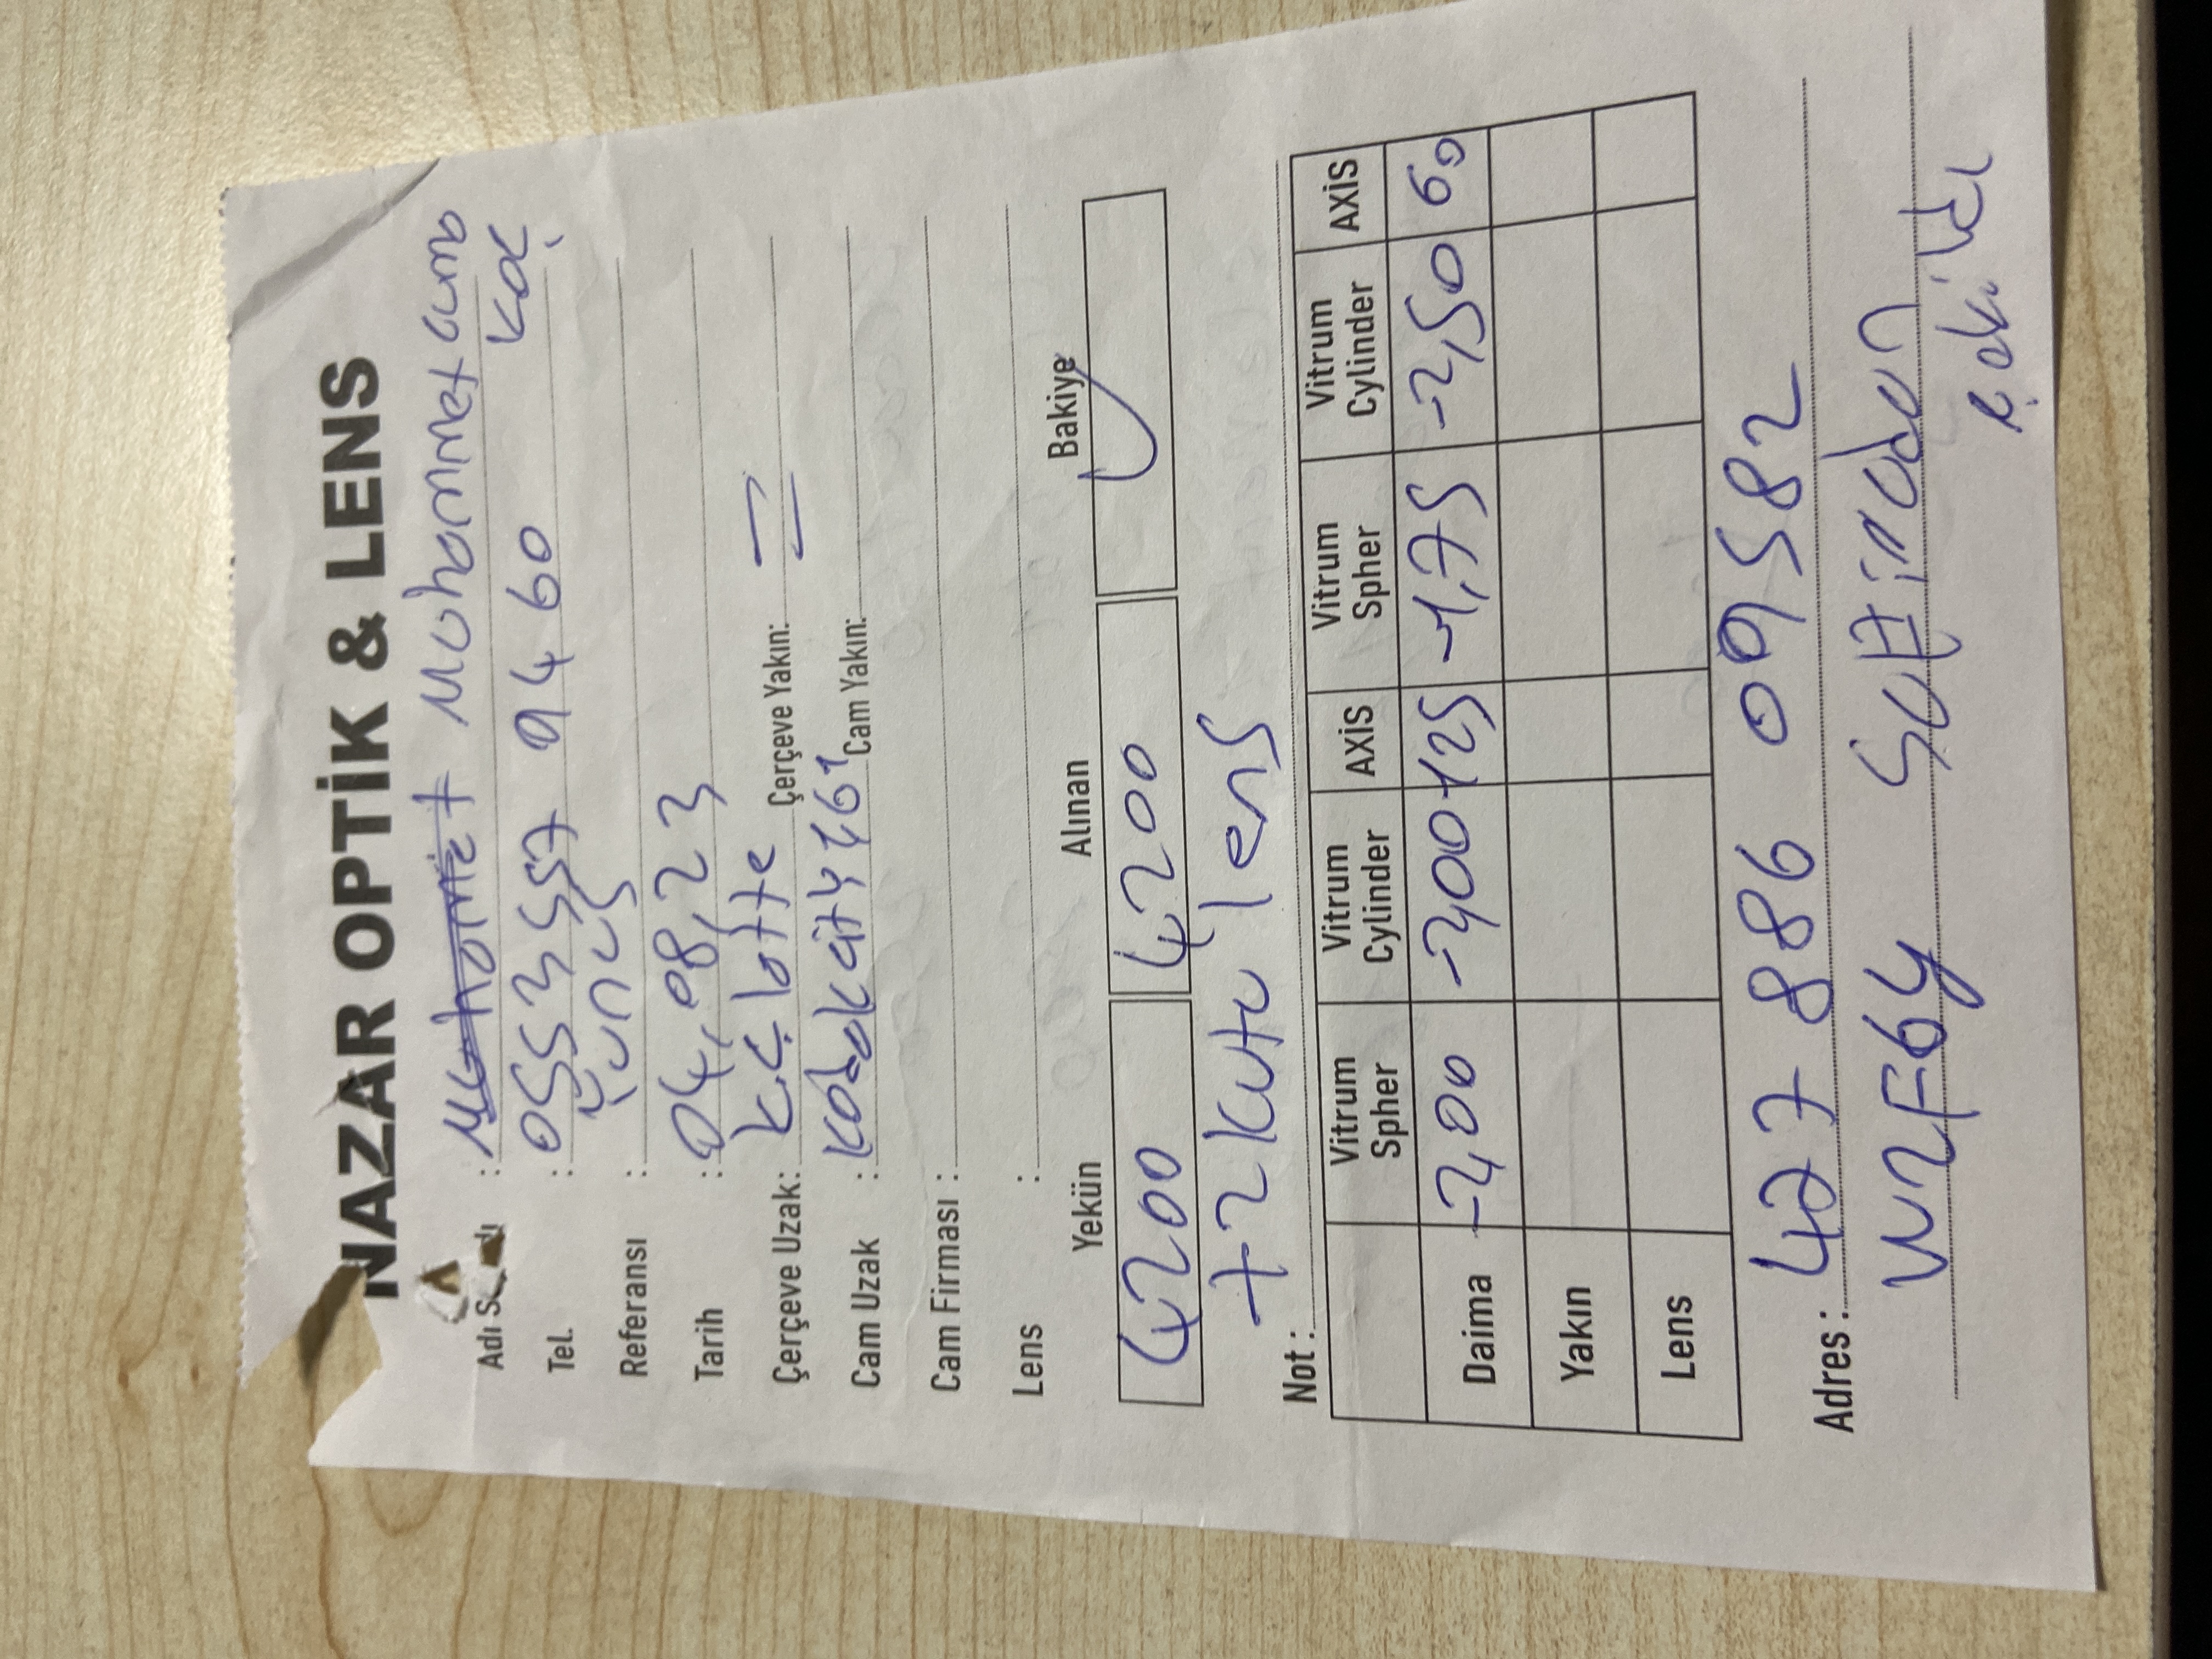 NAZAR OPTİK & LENS
Adı S dı : Muhammet Cuma
Koç
Tel. : 0553 557 94 60
Referansı : Yunus
Tarih : 04,08,23
Çerçeve Uzak: Çerçeve Yakın: =
Cam Uzak : Cam Yakın:
Cam Firması :
Lens :
Yekün Alınan Bakiye
4200 4200
+2 kutu lens
Not :
Vitrum Spher Vitrum Cylinder AXİS Vitrum Spher Vitrum Cylinder AXİS
Daima -2,00 -2,00 125 -1,75 -2,50 60
Yakın
Lens
Adres : 427 886 09582
çekildi